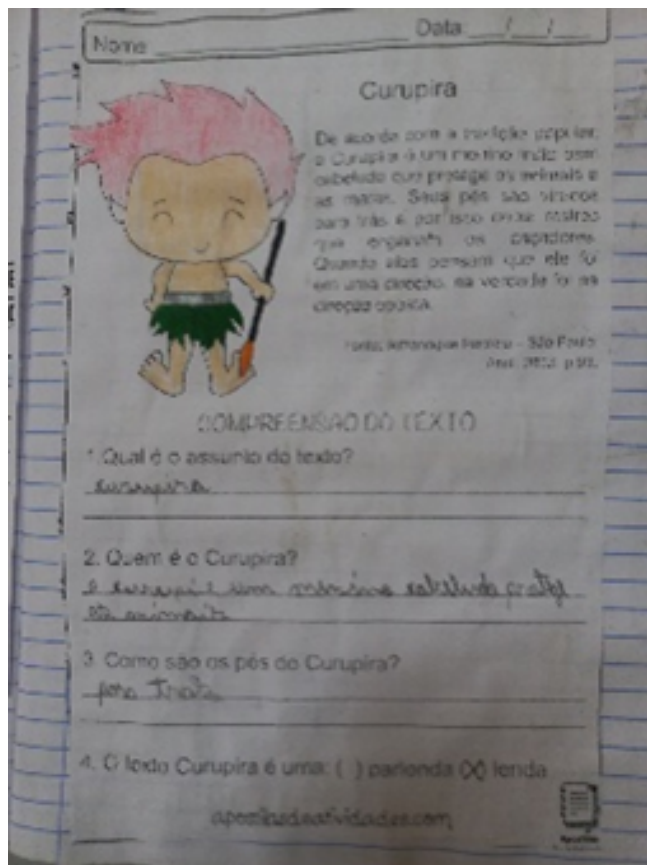 Nome Data: / /
Curupira
De acordo com a tradição popular,
o Curupira é um menino índio bem
cabeludo que protege os animais e
as matas. Seus pés são virados
para trás e por isso deixa rastros
que enganam os caçadores.
Quando eles pensam que ele foi
em uma direção, na verdade foi na
direção oposta.
São Paulo
p 92.
COMPREENSÃO DO TEXTO
1. Qual é o assunto do texto?
curupira
2. Quem é o Curupira?
o um menino cabeludo
animais
3. Como são os pés do Curupira?
para
4. O texto Curupira é uma: ( ) parlenda (X) lenda
apostilasdeatividades.com